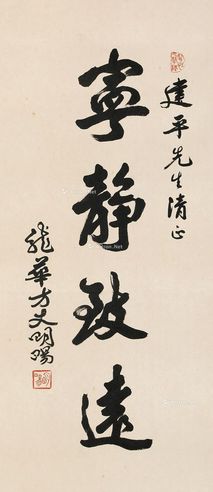 建平先生清正
寧靜致遠
龍華方丈明暘